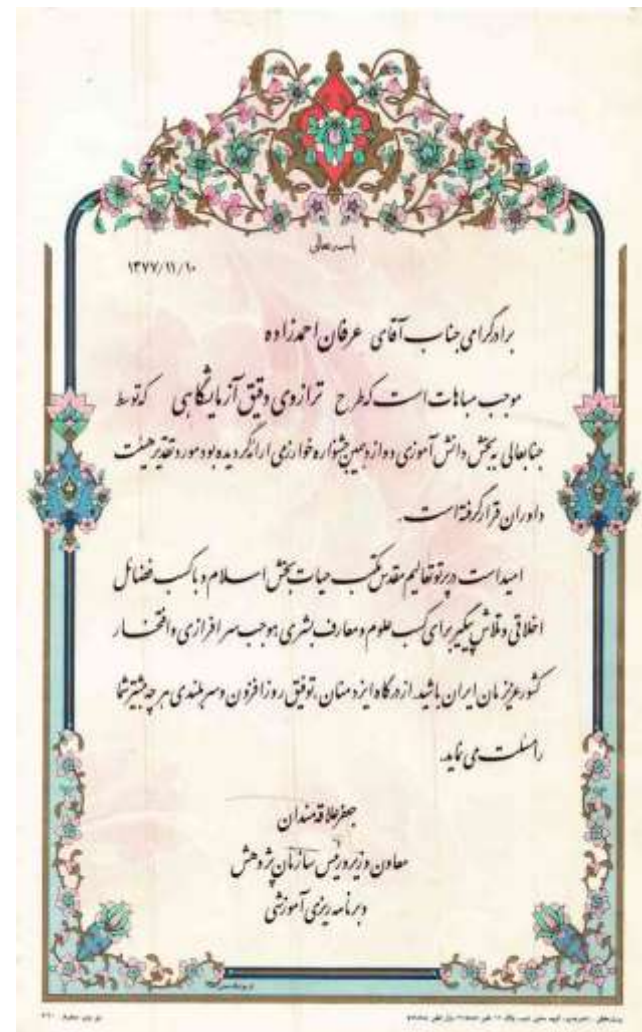 باسمه تعالی
۱۳۷۷/۱۱/۱۰
برادر گرامی جناب آقای عرفان احمدزاده
موجب مباهات است که طرح ترازوی دقیق آزمایشگاهی که توسط
جنابعالی به بخش دانش آموزی دوازدهمین جشنواره خوارزمی ارائه گردیده بود مورد تقدیر هیئت
داوران قرار گرفته است.
امید است در پرتو تعالیم مقدس مکتب حیات بخش اسلام و با کسب فضائل
اخلاقی و تلاش پیگیر برای کسب علوم و معارف بشری موجب سرافرازی و افتخار
کشور عزیزمان ایران باشید. از درگاه ایزد منان، توفیق روز افزون و سربلندی هر چه بیشتر شما
را مسئلت می نماید.
جعفر علاقه مندان
معاون وزیر و رئیس سازمان پژوهش
و برنامه ریزی آموزشی